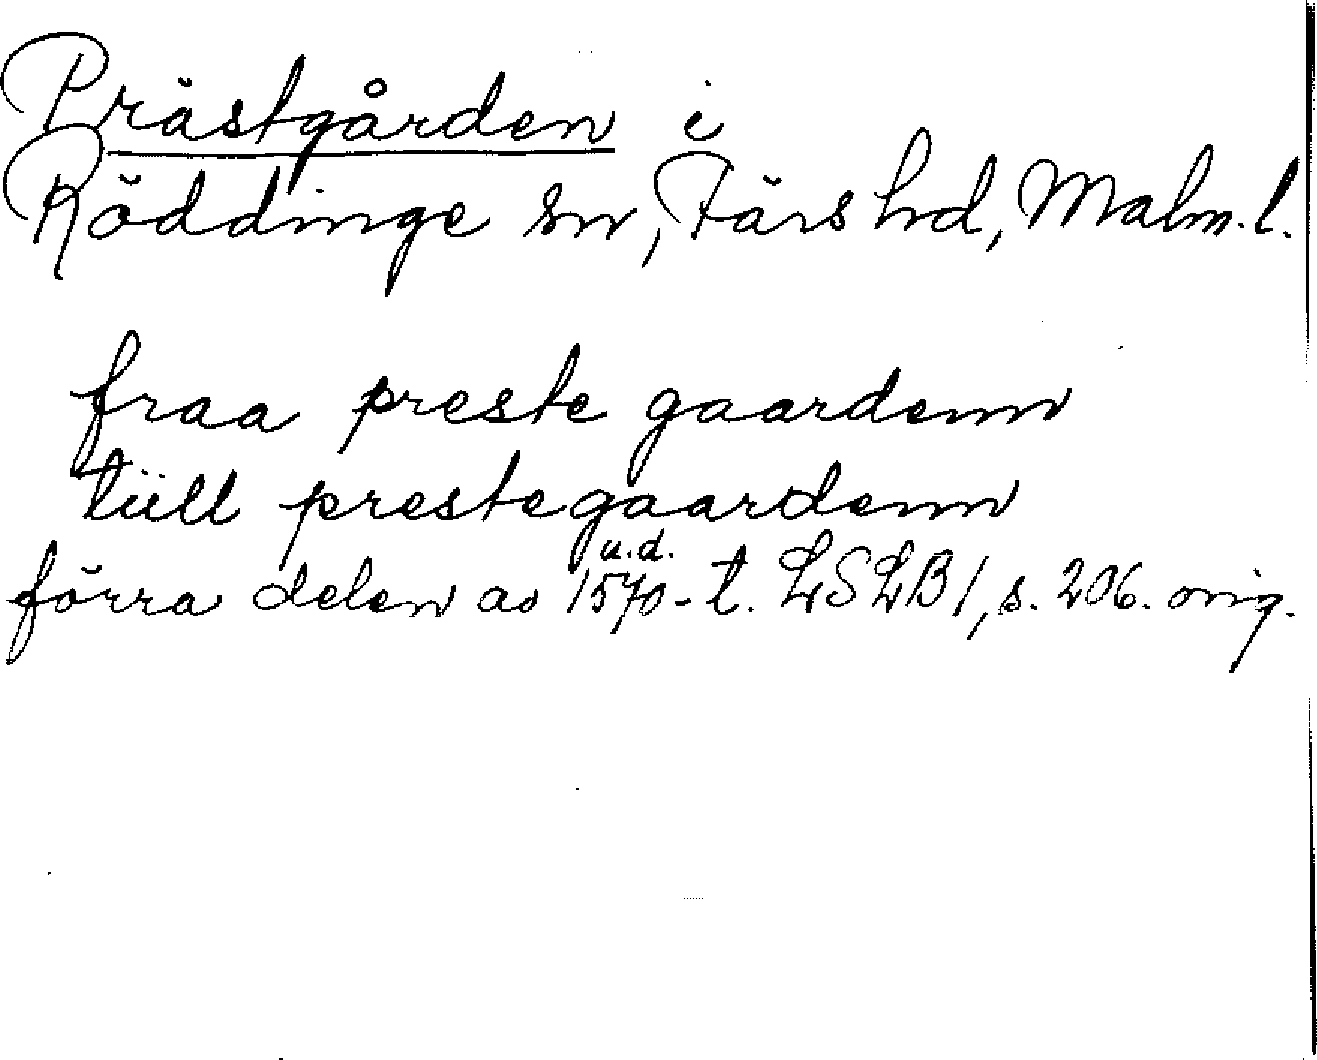 Prästgården i
Röddinge sn, Färs hd, Malm.l.
fraa preste gaardenn
tüll prestegaardenn
u.d.
förra delen av 1570-t. LSLB1, s. 206. orig.